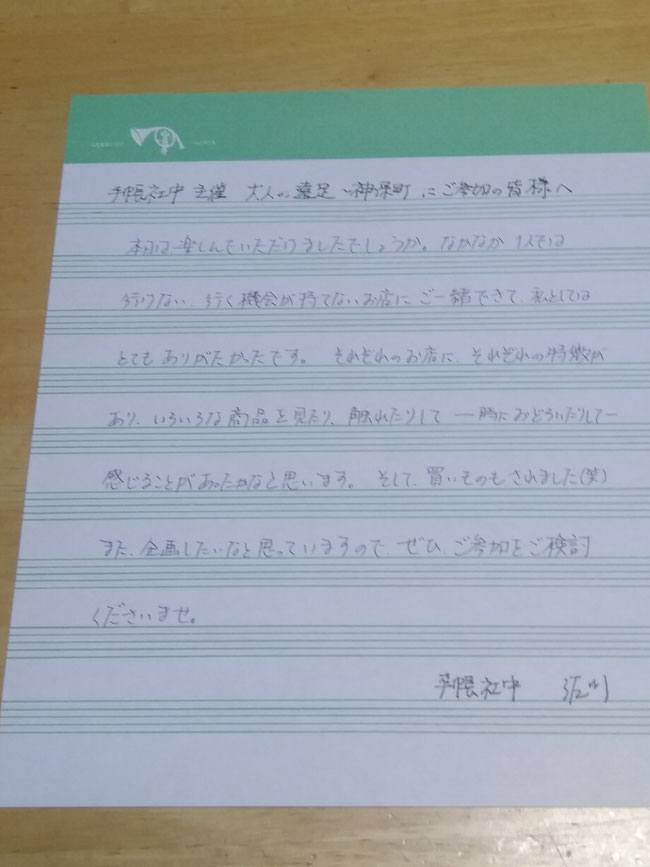 手帳社中 主催 大人の遠足 〜神保町 にご参加の皆様へ
本日は、楽しんでいただけましたでしょうか。なかなか 1人では
行けない、行く機会が持てないお店に ご一緒できて、私としては
とても ありがたかったです。 それぞれのお店に、それぞれの特徴が
あり、いろいろな商品を見たり、触れたりして ー時におどろいたりしてー
感じることがあったかなと思います。 そして、買いものもされました(笑)
また、企画したいなと思っていますので、ぜひ、ご参加をご検討
くださいませ。
手帳社中